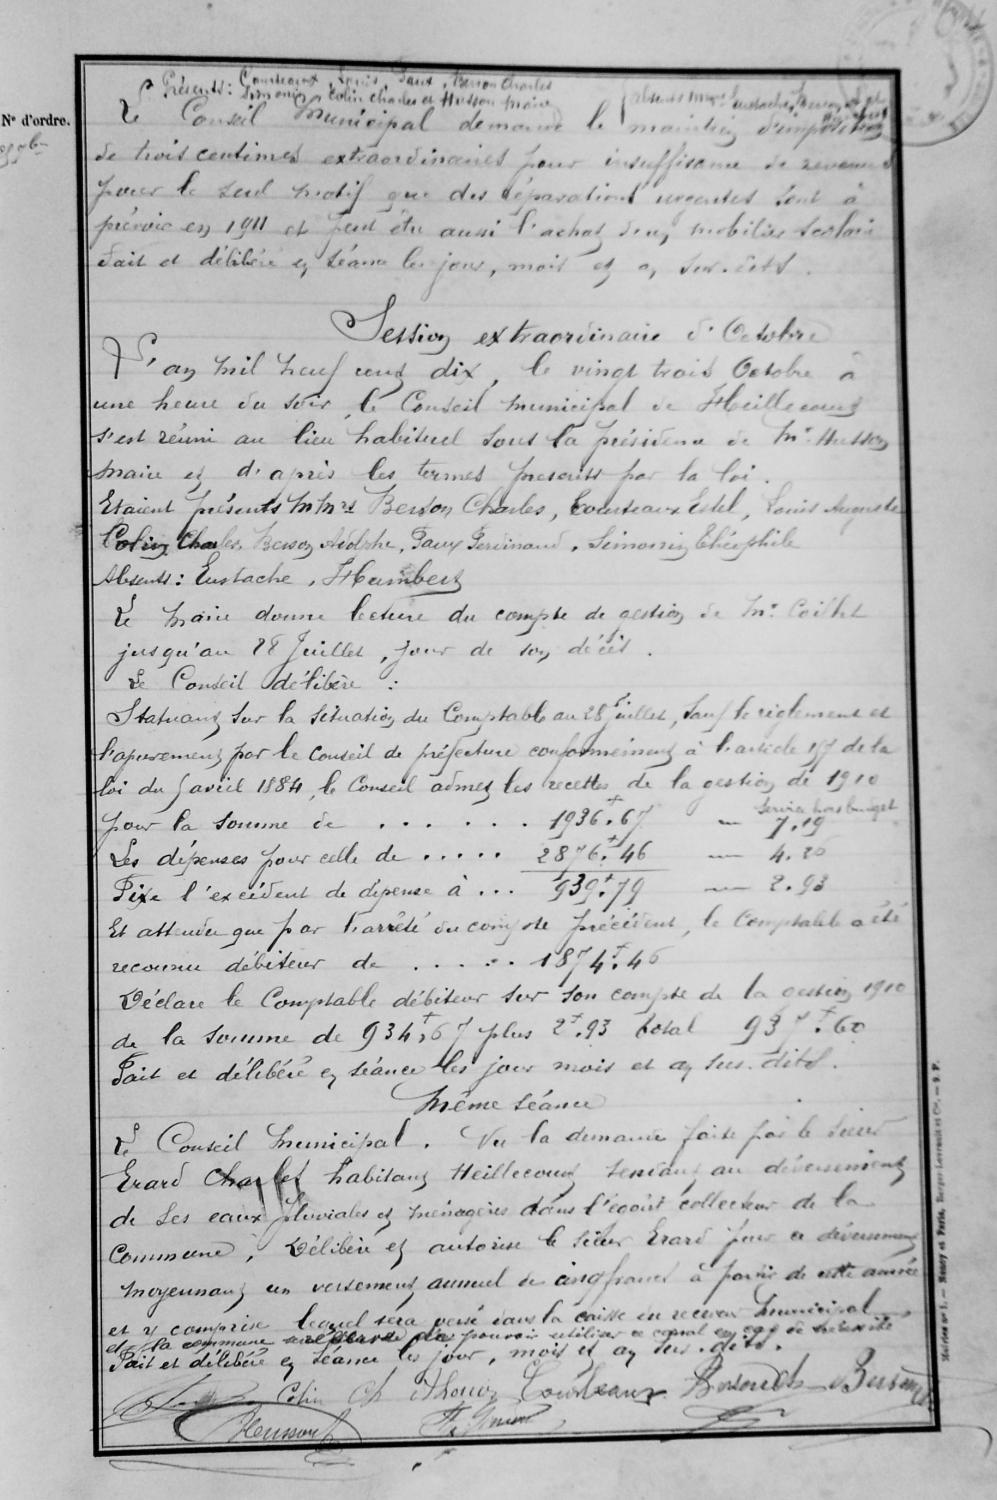 Présents: Courteaux, Louis, Paux, Berson Charles
Simonin, Colin Charles et Husson Maire
absents MMrs Eustache, Berson Adolphe
Humbert
N° d'ordre.
Le Conseil Municipal demande le maintien d'imposition
de trois centimes extraordinaires pour insuffisance de revenus
pour le seul motif que des réparations urgentes sont à
prévoir en 1911 et peut être aussi l'achat d'un mobilier scolaire
Fait et délibéré en séance les jour, mois et an sus-dits.
Session extraordinaire d'Octobre
L'an mil neuf cent dix, le vingt trois Octobre à
une heure du soir, le Conseil Municipal de Heillecourt
s'est réuni au lieu habituel sous la présidence de Mr Husson
Maire et d'après les termes prescrits par la loi.
Etaient présents MMrs Berson Charles, Courteaux Estel, Louis Auguste
Colin Charles, Berson Adolphe, Paux Ferdinand, Simonin Théophile
Absents: Eustache, Humbert
Le Maire donne lecture du compte de gestion de Mr
jusqu'au 28 Juillet, jour de son décès.
Le Conseil délibère :
Statuant sur la situation du Comptable au 28 Juillet, sauf le règlement et
l'apurement par le Conseil de préfecture conformément à l'article 157 de la
loi du 5 avril 1884, le Conseil admet les recettes de la gestion de 1910
Service hors budget
pour la somme de . . . . . . 1936f.67 — 7.19
Les dépenses pour celle de . . . . . 2876f.46 — 4.26
Fixe l'excédent de dépense à . . . 939f.79 — 2.93
Et attendu que par l'arrêté du compte précédent, le Comptable a été
reconnu débiteur de . . . . . 1874f.46
Déclare le Comptable débiteur sur son compte de la gestion 1910
de la somme de 934f,67 plus 2f.93 total 937f.60
Fait et délibéré en séance les jour mois et an sus-dits.
Même séance
Le Conseil Municipal. Vu la demande faite par le sieur
Erard Charles habitant Heillecourt tendant au déversement
de ses eaux pluviales et ménagères dans l'égout collecteur de la
Commune, Délibère et autorise le sieur Erard pour ce déversement
moyennant un versement annuel de cinq francs à partir de cette année
et y comprise lequel sera versé dans la caisse du receveur Municipal
et la commune se réserve de pouvoir utiliser ce canal en cas de nécessité
Fait et délibéré en séance les jour, mois et an sus-dits.
Colin Ch Courteaux
Husson